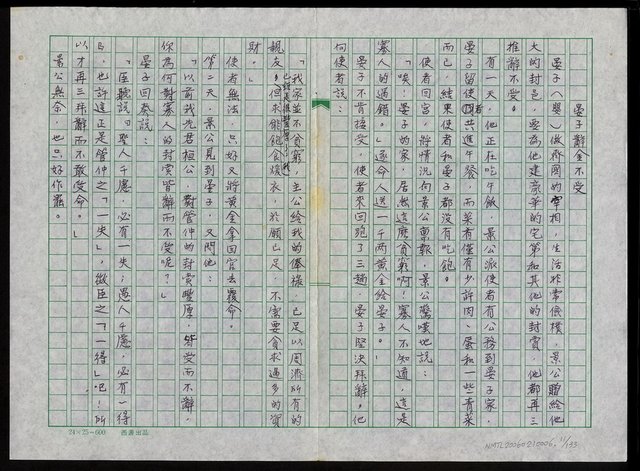 晏子辭金不受
晏子(嬰)做齊國的宰相,生活非常儉樸,景公贈給他
大的封邑,要為他建豪華的宅第和其他的封賞,他都再三
推辭不受。
有一天,他正在吃午飯,景公派使者有公務到晏子家,
晏子留使者共進午餐,而菜者僅有少許肉、蛋和一些青菜
而已,結果使者和晏子都沒有吃飽。
使者回宮,將情況向景公稟報,景公驚嘆地說:
「唉!晏子的家,居然這麼貧窮啊!寡人不知道,這是
寡人的過錯。」遂命人送一千兩黃金給晏子。
晏子不肯接受,使者來回跑了三趟,晏子堅決拜辭。他
向使者說:
「我家並不貧窮,主公給我的俸祿,已足以周濟所有的
親友。但求能飽食煖衣,於願已足,不需要貪求過多的資
財。」
使者無法,只好又將黃金拿回宮去覆命。
第二天,景公見到晏子,又問他:
「以前我先君桓公,對管仲的封賞豐厚,管受而不辭,
你為何對寡人的封賞皆辭而不受呢?」
晏子回奏說:
「臣聽說:聖人千慮,必有一失;愚人千慮,必有一得
。也許這正是管仲之「一失」,微臣之「一得」吧!所
以才再三拜辭而不敢受命。」
景公無言,也只好作罷。
24×25=600
NMTL20060210006. 11/133